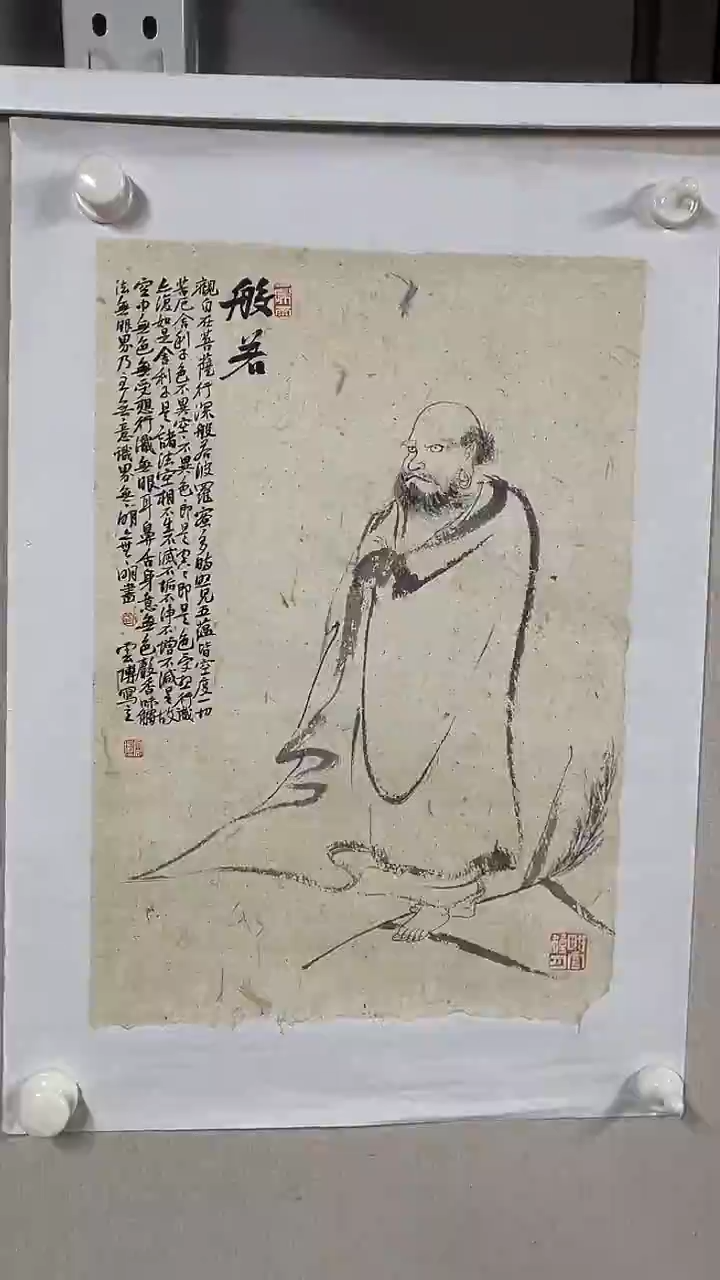 般若
觀自在菩薩行深般若波羅蜜多時照見五蘊皆空度一切
苦厄舍利子色不異空不異色即是空空即是色受想行識
亦復如是舍利子是諸法空相不生不滅不垢不淨不增不減是故
空中無色無受想行識無眼耳鼻舌身意無色聲香味觸
法無眼界乃至無意識界無明